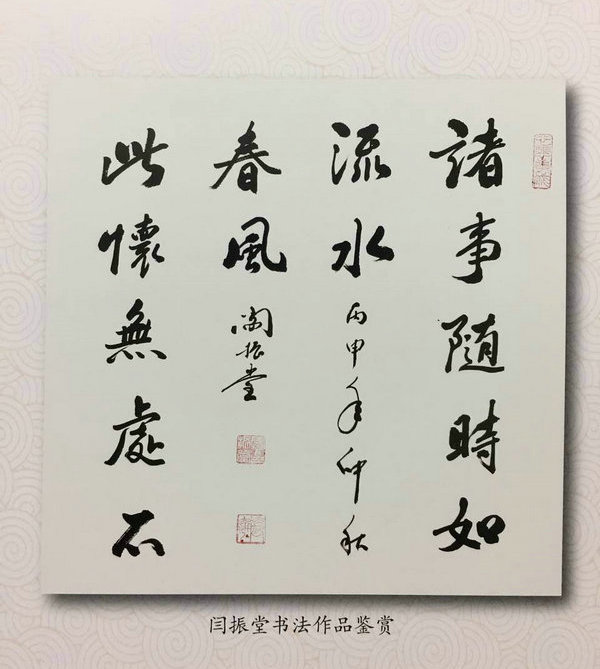 諸事隨時如
流水
丙申年仲秋
此懷無處不
春風
閆振堂
闫振堂书法作品鉴赏